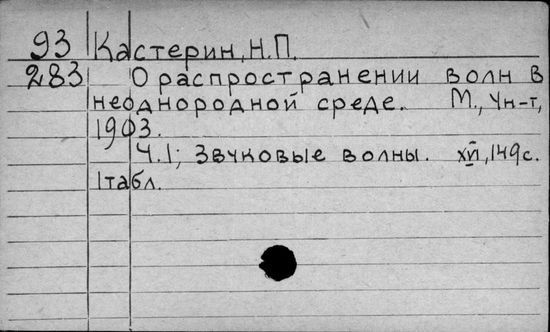 93 Кастерин, Н.П.
283 О распространении волн в
неоднородной среде. М., Ун-т,
1903.
Ч.1; Звуковые волны. XVI, 149 с.
1 табл.